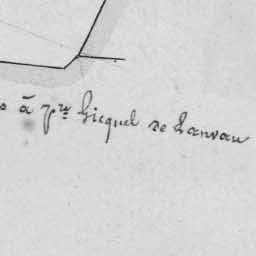 à pre Gicquel de Lanvau